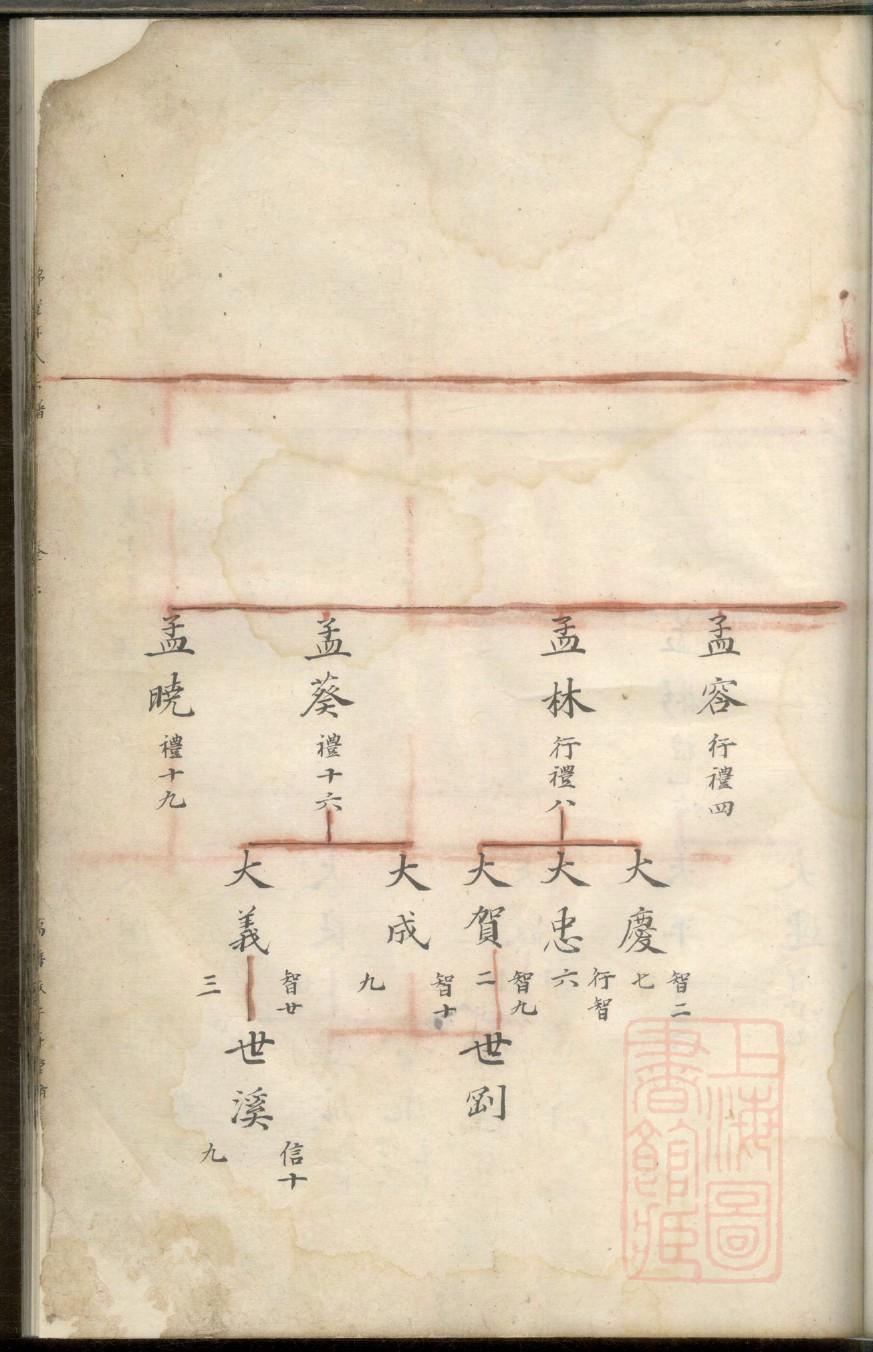 孟容行禮四
孟林行禮八
孟葵禮十六
孟暁禮十九
大慶智二七
大忠行智六
大賀智九二
大成智十九
大義智廿三
世㓻
世溪信十九
上海圖
書館藏